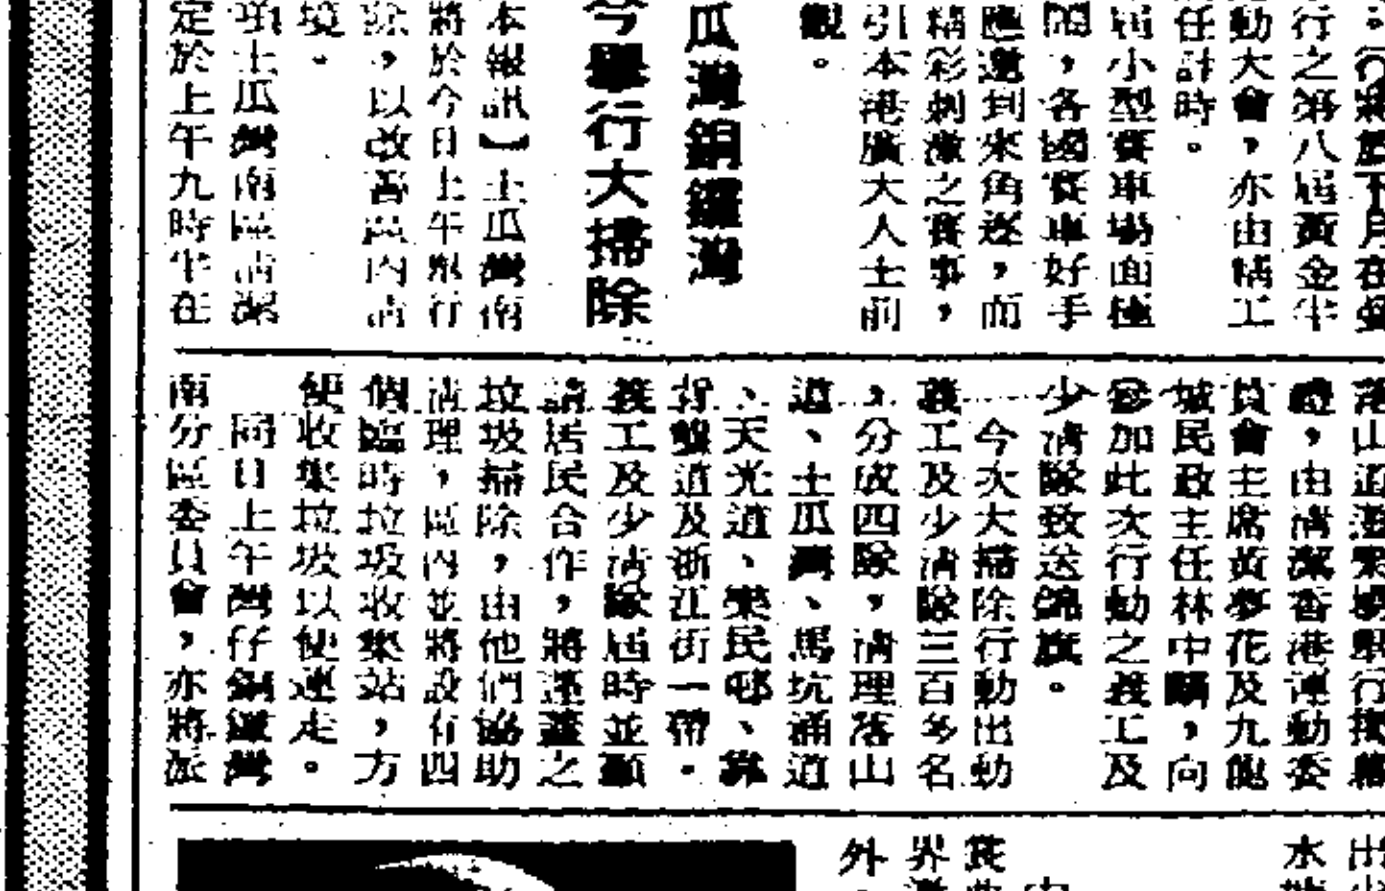 行之第八屆黃金牛
動大會，亦由精工
任計時。
屆小型賽車場面極
，各國賽車好手
應邀到來角逐，而
精彩刺激之賽事，
引本港廣大人士前
觀。
瓜灣銅鑼灣
今舉行大掃除
本報訊】土瓜灣南
將於今日上午舉行
除，以改善區內清
境。
項土瓜灣南區清潔
定於上午九時半在
禮，由清潔香港運動委
員會主席黃夢花及九龍
城民政主任林中麟，向
參加此次行動之義工及
少清隊致送錦旗。
今次大掃除行動出動
義工及少清隊三百多名
，分成四隊，清理落山
道、土瓜灣、馬坑涌道
、天光道、樂民邨、靠
背壟道及浙江街一帶。
義工及少清隊屆時並顧
請居民合作，將運蓋之
垃圾掃除，由他們協助
清理，區內並將設有四
個臨時垃圾收集站，方
便收集垃圾以便運走。
同日上午灣仔銅鑼灣
南分區委員會，亦將派
水
界
外